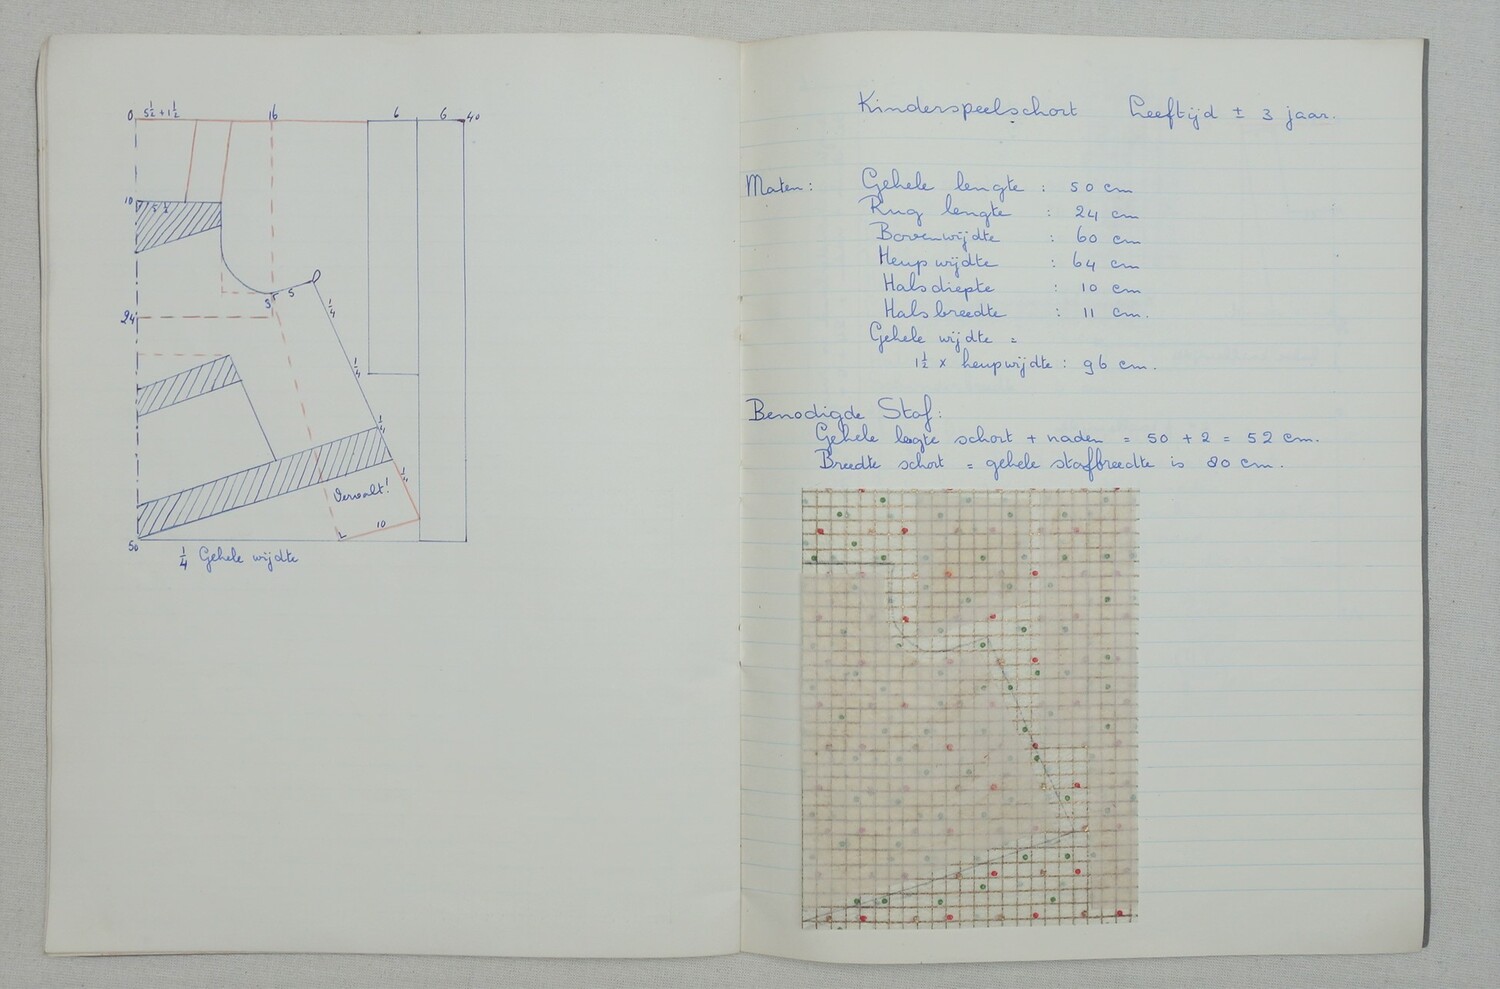 0 5½+1½ 16 6 6 40
10
5½
3 5
¼
24
¼
¼
¼
Vervalt!
10
50
¼ Gehele wijdte
Kinderspeelschort Leeftijd ± 3 jaar.
Maten: Gehele lengte : 50 cm
Rug lengte : 24 cm
Bovenwijdte : 60 cm
Heupwijdte : 64 cm
Halsdiepte : 10 cm
Halsbreedte : 11 cm.
Gehele wijdte =
1½ × heupwijdte : 96 cm.
Benodigde Stof:
Gehele legte schort + naden = 50 + 2 = 52 cm.
Breedte schort = gehele stofbreedte is 80 cm.